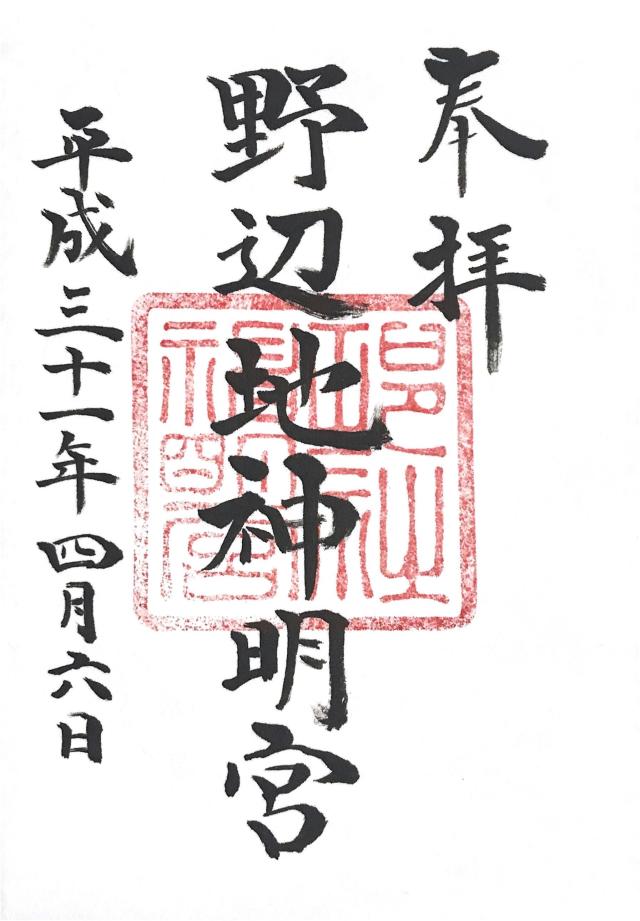 奉拝
野辺地神明宮
平成三十一年四月六日